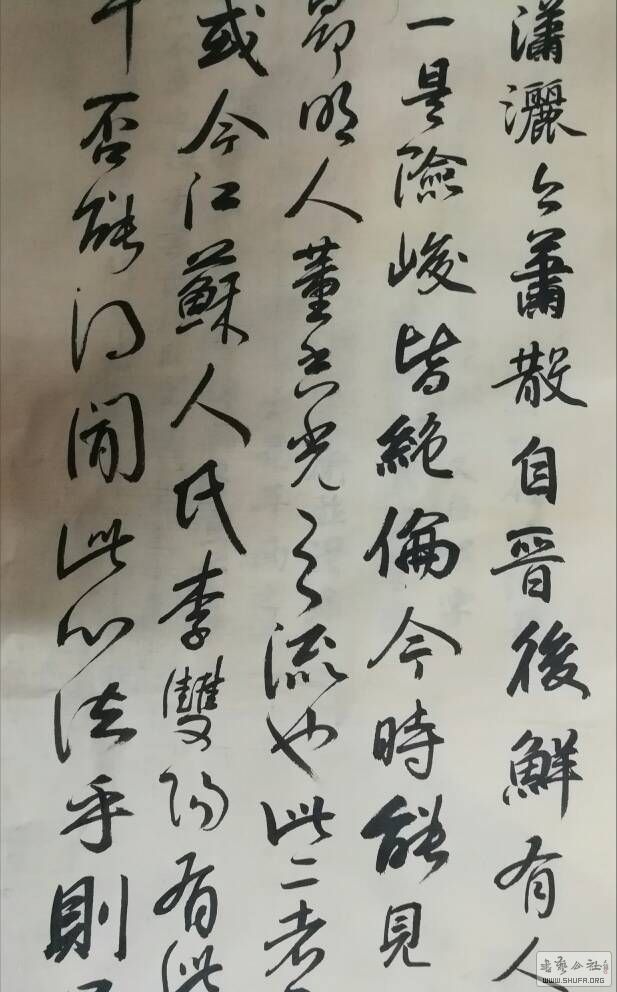 瀟灑之蕭散自晉後鮮有人
一是險峻皆絶倫今時能見
節明人董香光之流也此二者
或今江蘇人氏李雙陽有此
否能得聞此心法乎則
書藝公社
WWW.SHUFA.ORG